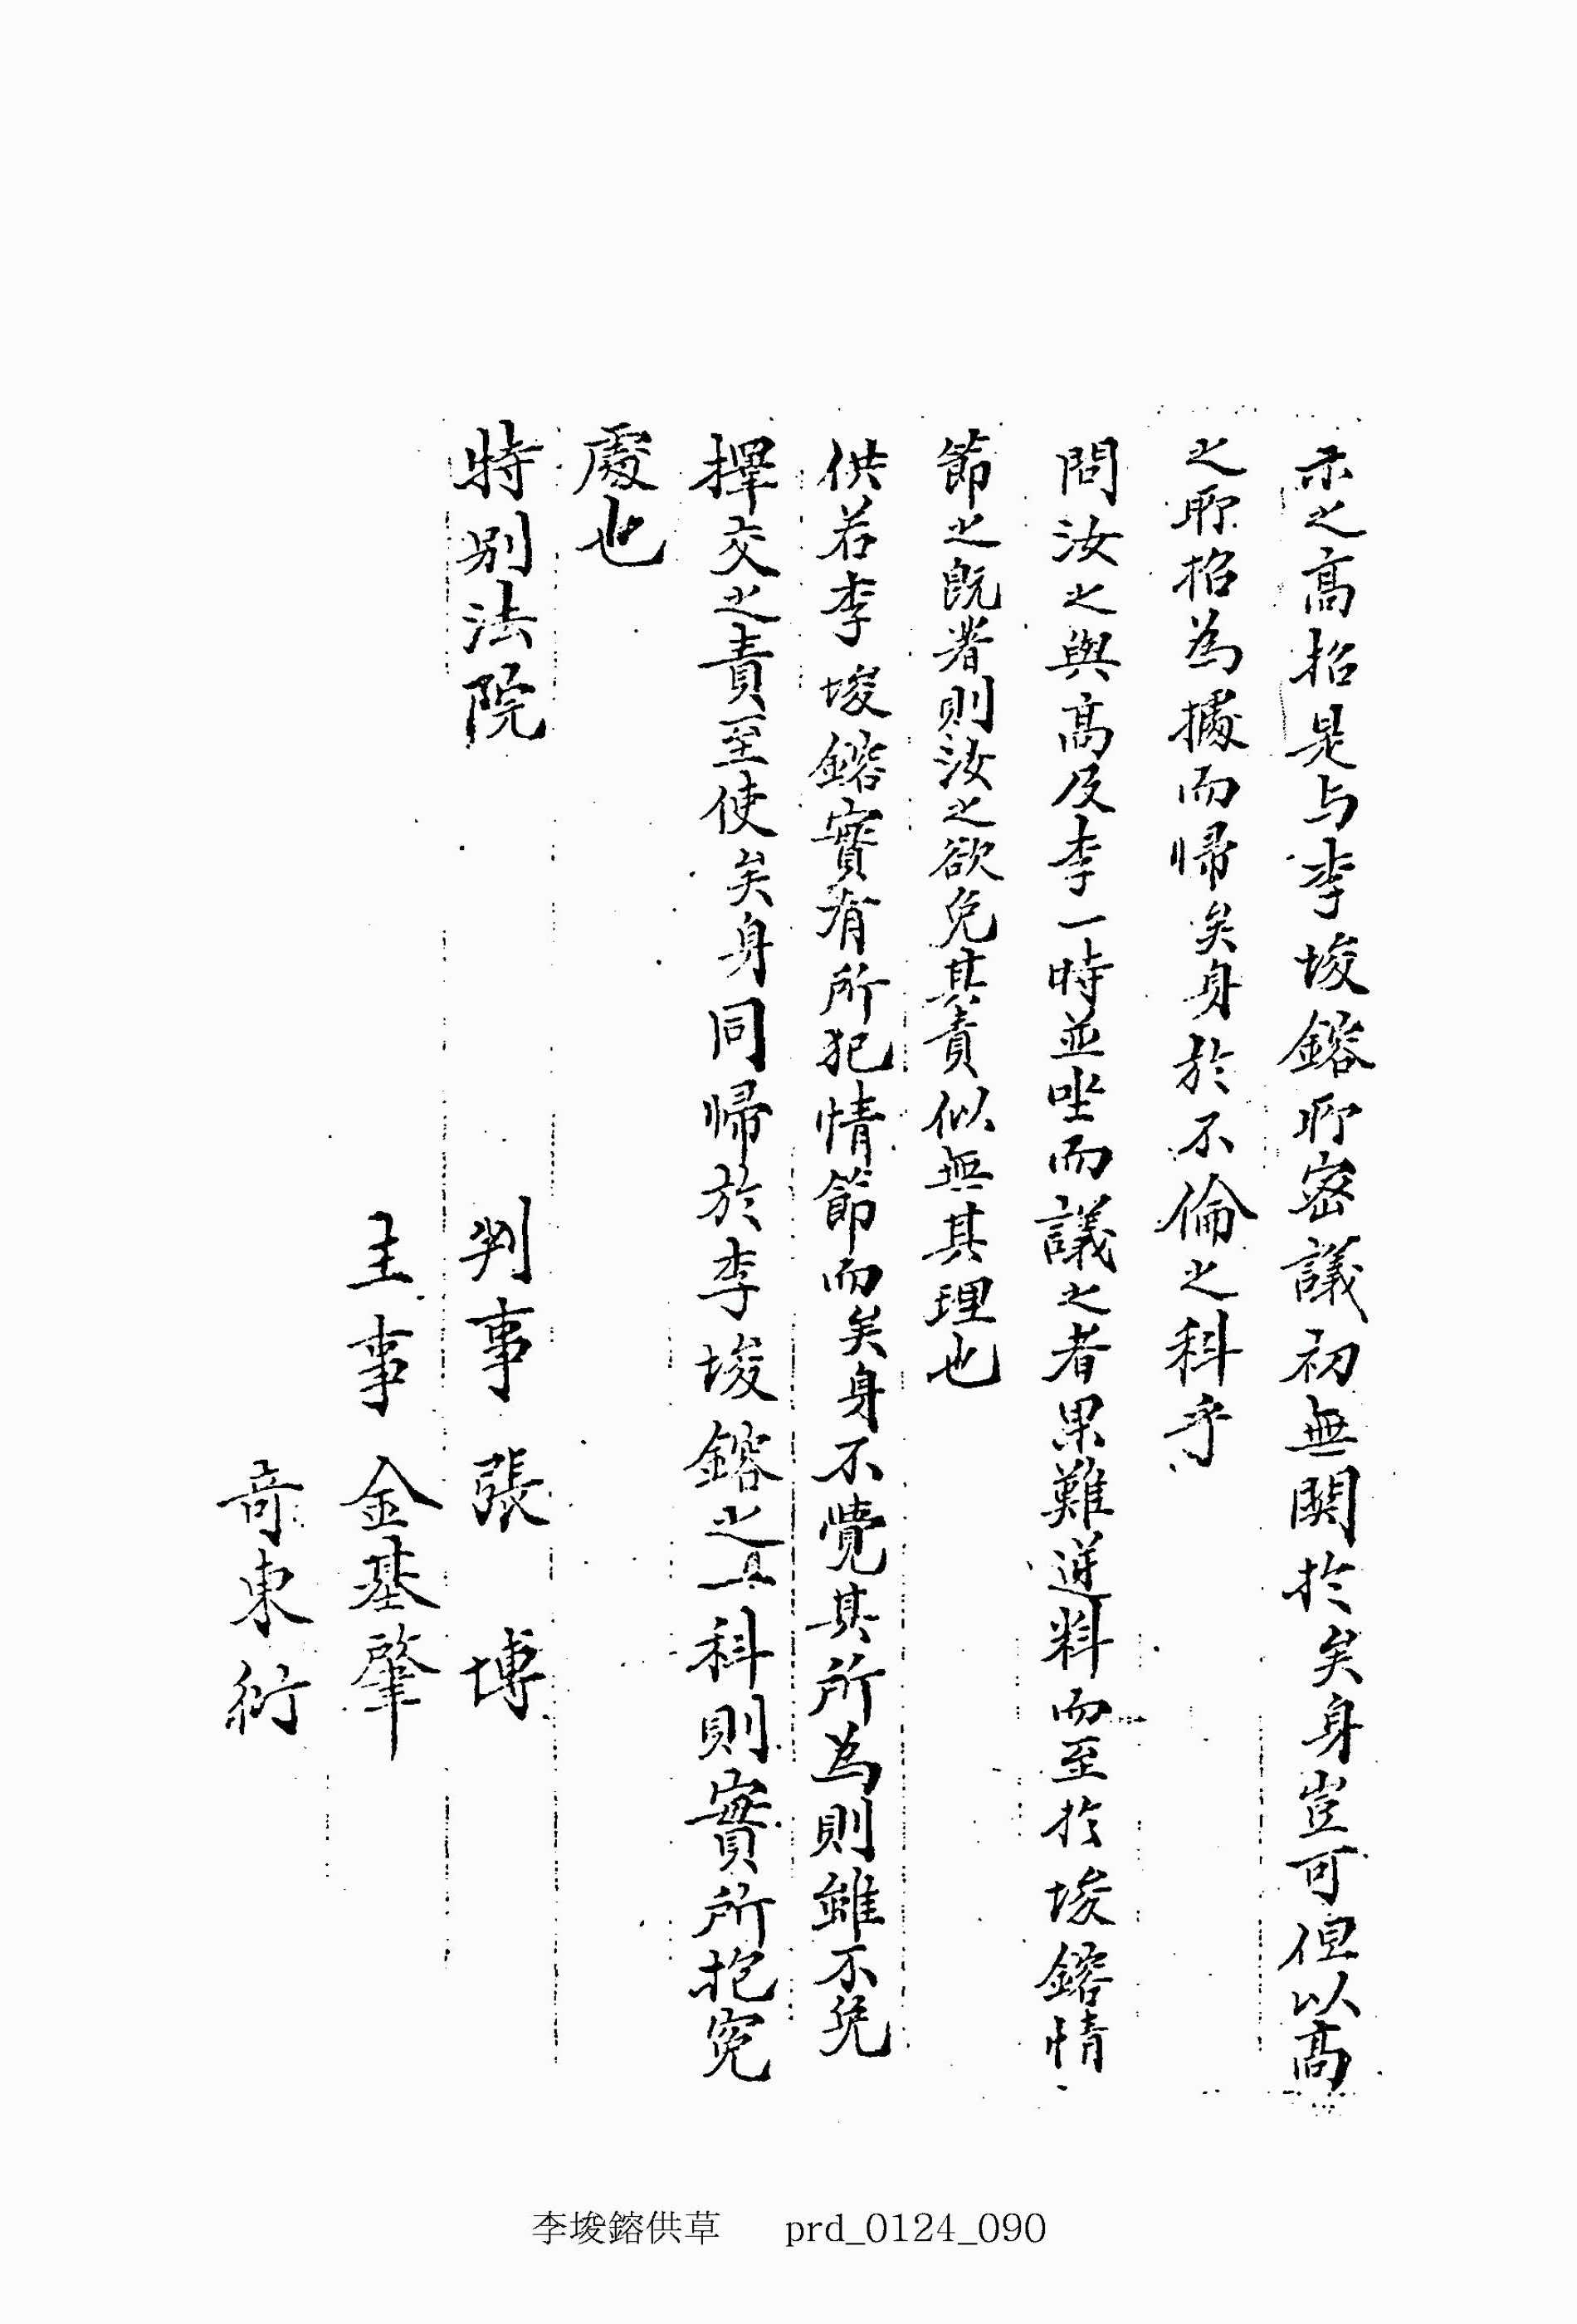 示之高招是与李埈鎔所密議初無関於矣身豈可但以高
之所招為據而歸矣身於不倫之科乎
問汝之與高及李一時並坐而議之者果難逆料而至於埈鎔情
節之既着則汝之欲免其責似無其理也
供若李埈鎔實有所犯情節而矣身不覺其所為則雖不免
擇交之責至使矣身同歸於李埈鎔之一科則實所抱冤
處也
特別法院 判事 張博
主事 金基肇
奇東衍
李埈鎔供草 prd_0124_090